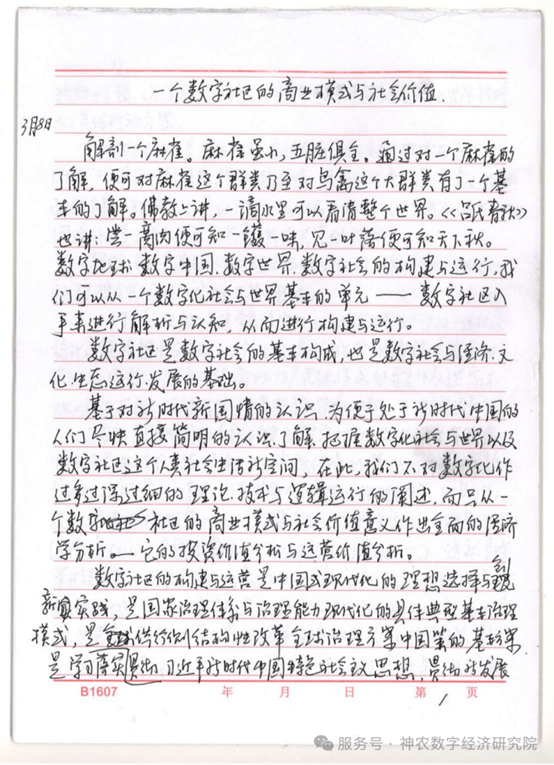 一个数字社区的商业模式与社会价值.
3月8日
解剖一个麻雀。麻雀虽小,五脏俱全。通过对一个麻雀的
了解,便可对麻雀这个群类乃至对鸟禽这个大群类有了一个基
本的了解。佛教上讲,一滴水里可以看清整个世界。《吕氏春秋》
也讲:尝一脔肉便可知一镬一味,见一叶落便可知天下秋。
数字地球、数字中国、数字世界、数字社会的构建与运行,我
们可以从一个数字化社会与世界基本的单元——数字社区入
手来进行解析与认知,从而进行构建与运行。
数字社区是数字社会的基本构成,也是数字社会与经济、文
化、生态运行、发展的基础。
基于对新时代新国情的认识,为便于处于新时代中国的
人们尽快直接简明的认识、了解、把握数字化社会与世界以及
数字社区这个人类社会生活新空间,在此,我们不对数字化作
过多过深过细的理论、技术与逻辑运行的阐述,而只从一
个数字社区的商业模式与社会价值意义作出全面的经济
学分析。—它的投资价值分析与运营价值分析。
数字社区的构建与运营是中国式现代化的理想选择与
实践,是国家治理体系与治理能力现代化的具体典型基本治理
模式,是供给侧结构性改革全球治理方案中国策的基本方案
是学习落实贯彻习近平新时代中国特色社会主义思想,贯彻新发展
B1607 年 月 日 第 1 页
服务号·神农数字经济研究院